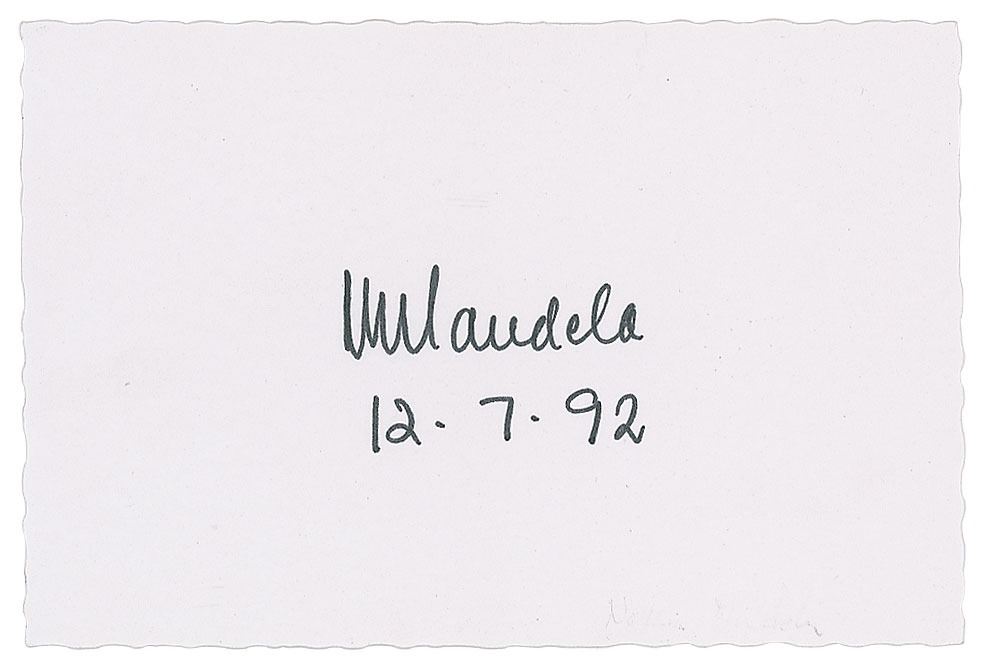 NMandela
12.7.92